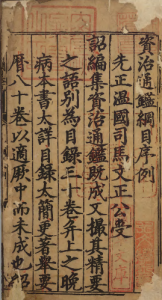 資治通鑑綱目序例
先正溫國司馬文正公受
詔編集資治通鑑既成又撮其精要
之語別為目錄三十卷并上之晚
病本書太詳目錄太簡更著舉要
曆八十卷以適厥中而未成也紹